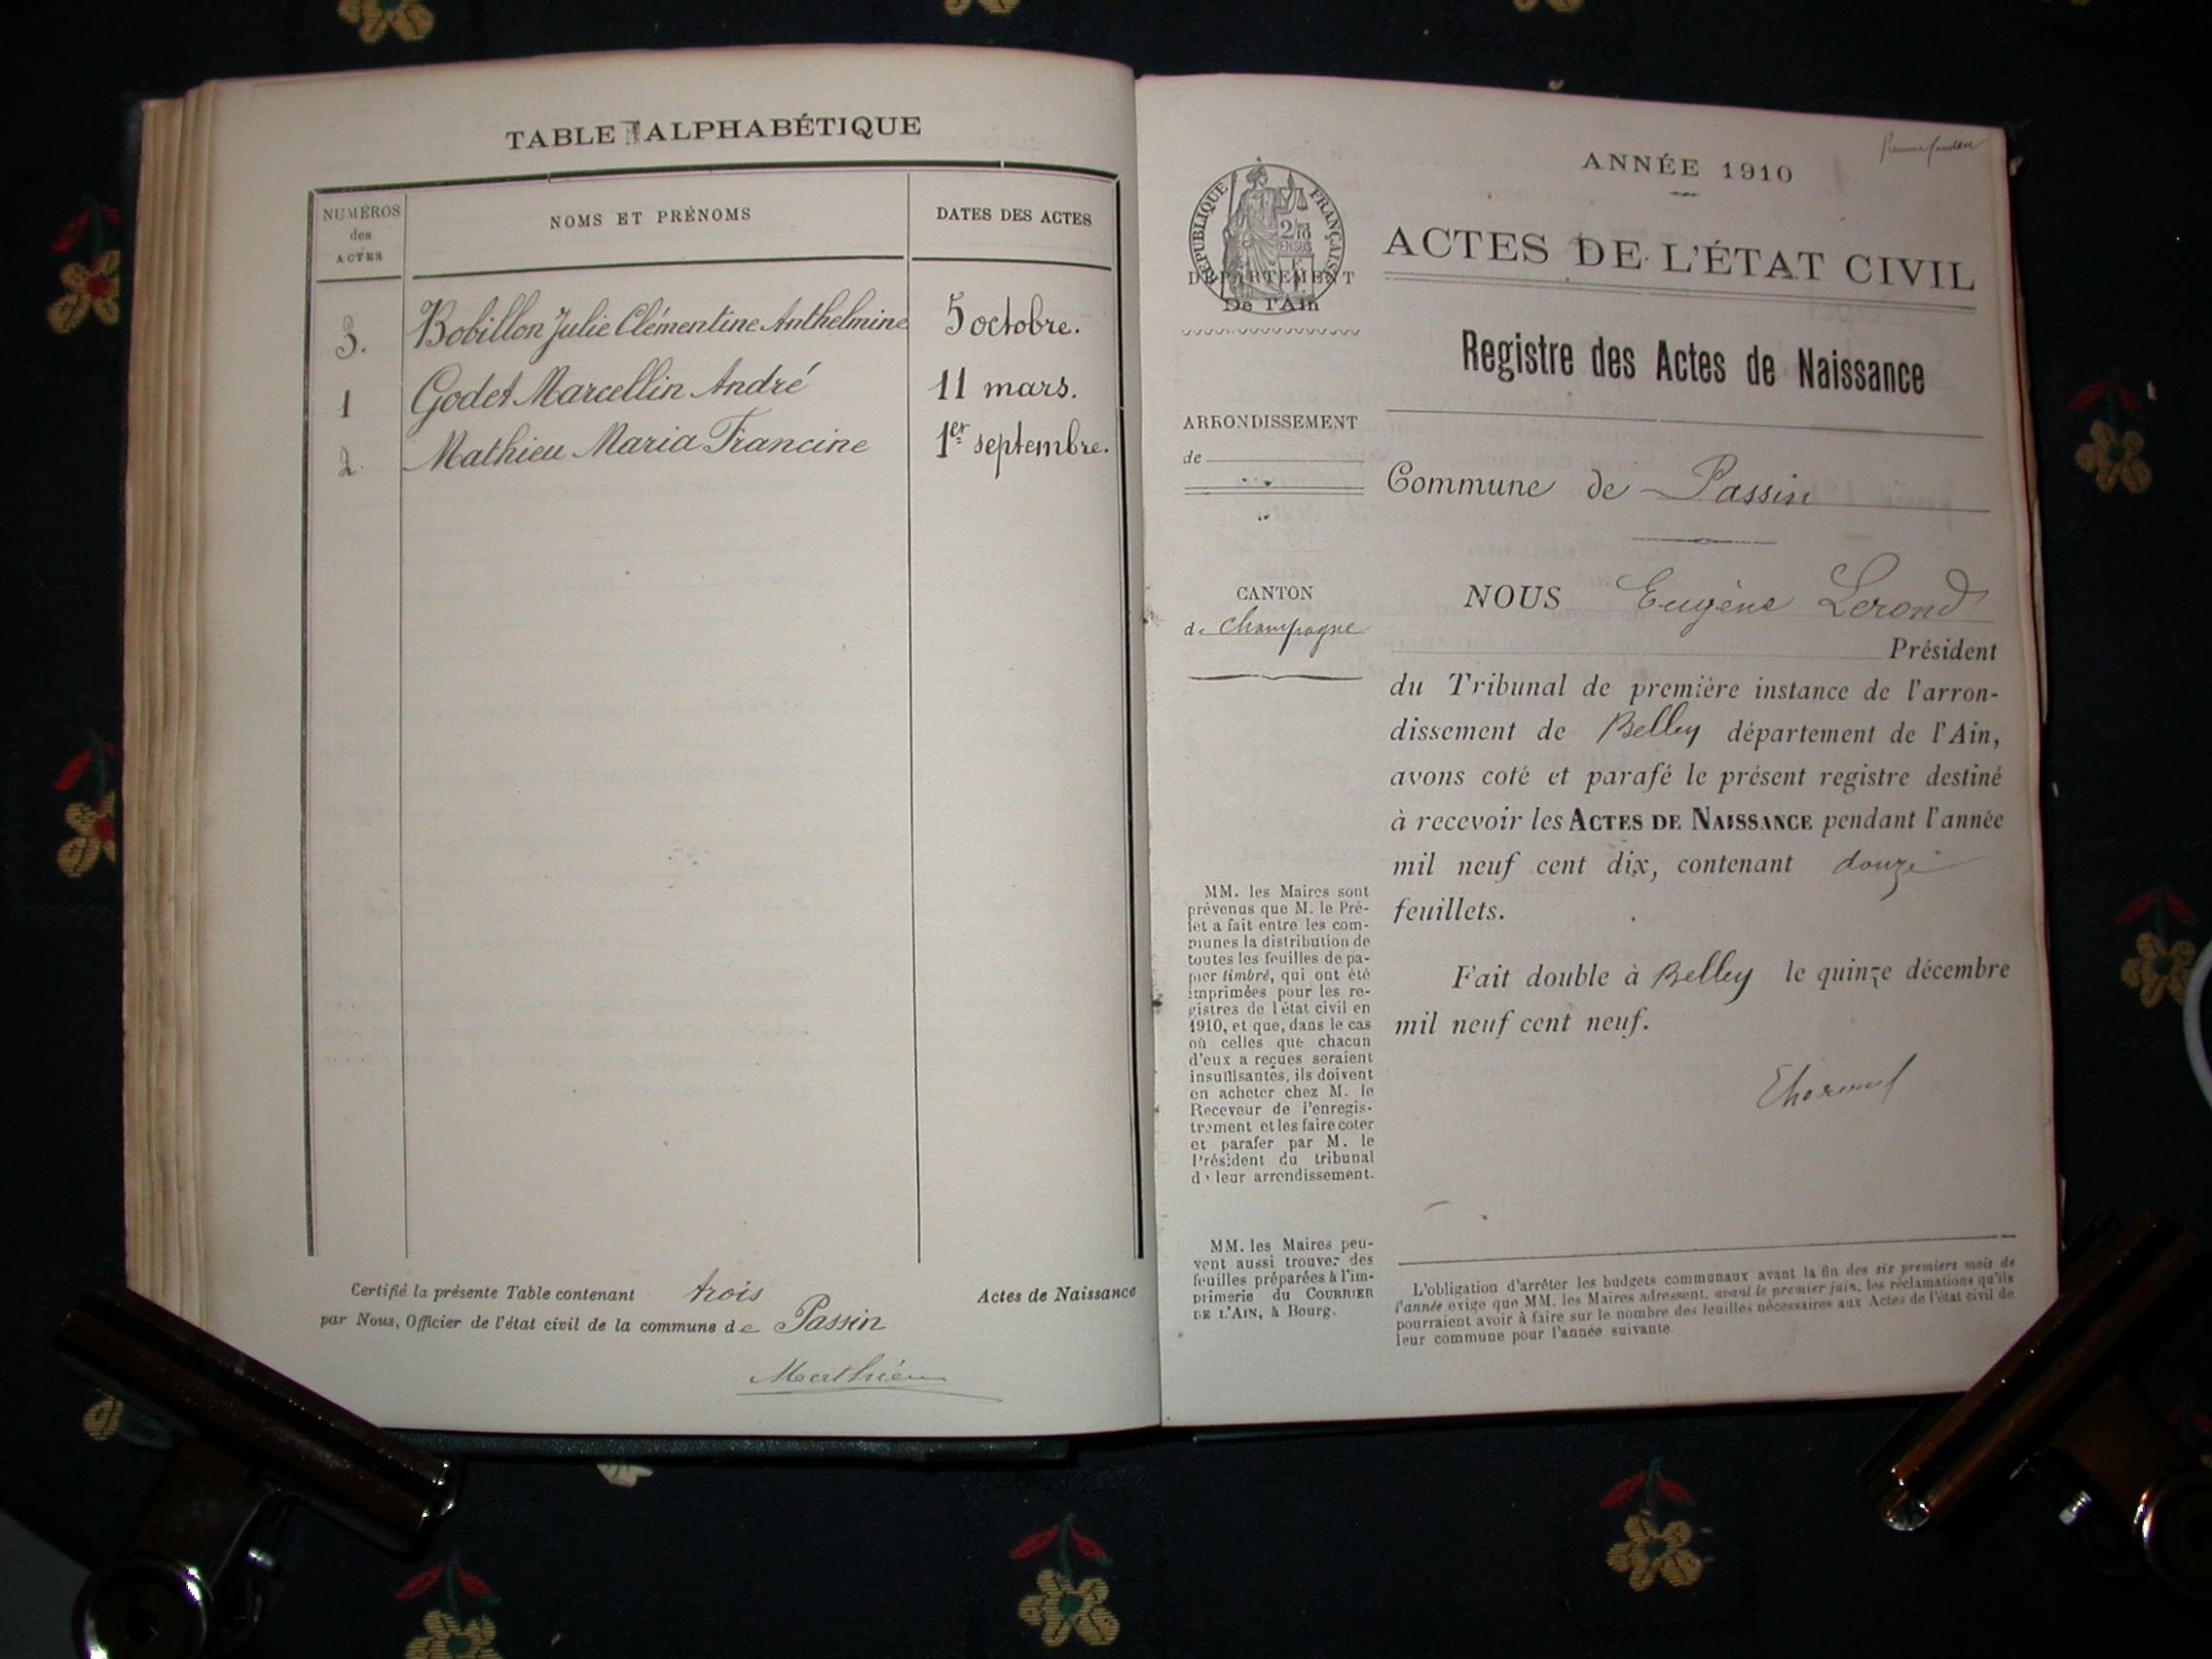 TABLE ALPHABÉTIQUE
NUMÉROS
des
ACTES
NOMS ET PRÉNOMS
DATES DES ACTES
3. Bobillon Julie Clémentine Anthelmine 5 octobre.
1 Godet Marcellin André 11 mars.
2. Mathieu Maria Francine 1er septembre.
Certifié la présente Table contenant trois Actes de Naissance
par Nous, Officier de l'état civil de la commune de Passin
Mathieu
ANNÉE 1910
RÉPUBLIQUE FRANÇAISE
DÉPARTEMENT
De l'Ain
ACTES DE L'ÉTAT CIVIL
Registre des Actes de Naissance
ARRONDISSEMENT
de
Commune de Passin
CANTON
de Champagne
NOUS Eugène Lerond
Président
du Tribunal de première instance de l'arron-
dissement de Belley département de l'Ain,
avons coté et parafé le présent registre destiné
à recevoir les ACTES DE NAISSANCE pendant l'année
mil neuf cent dix, contenant douze
feuillets.
Fait double à Belley le quinze décembre
mil neuf cent neuf.
MM. les Maires sont
prévenus que M. le Pré-
fet a fait entre les com-
munes la distribution de
toutes les feuilles de pa-
pier timbré, qui ont été
imprimées pour les re-
gistres de l'état civil en
1910, et que, dans le cas
où celles que chacun
d'eux a reçues seraient
insuffisantes, ils doivent
en acheter chez M. le
Receveur de l'enregis-
trement et les faire coter
et parafer par M. le
Président du tribunal
de leur arrondissement.
MM. les Maires peu-
vent aussi trouver des
feuilles préparées à l'im-
primerie du COURRIER
DE L'AIN, à Bourg.
L'obligation d'arrêter les budgets communaux avant la fin des six premiers mois de
l'année exige que MM. les Maires adressent, avant le premier juin, les réclamations qu'ils
pourraient avoir à faire sur le nombre des feuilles nécessaires aux Actes de l'état civil de
leur commune pour l'année suivante